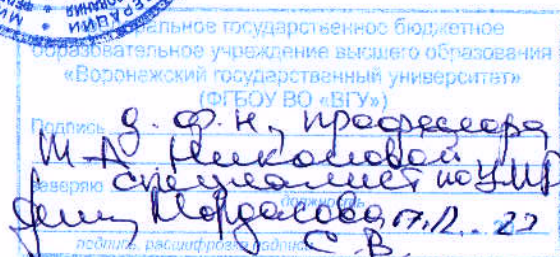 федеральное государственное бюджетное
образовательное учреждение высшего образования
«Воронежский государственный университет»
(ФГБОУ ВО «ВГУ»)
Подпись д. ф. н., профессора
Николовой
заверяю специалист по УМР
должность
Мордасова 17.12. 22
подпись, расшифровка подписи С.В.